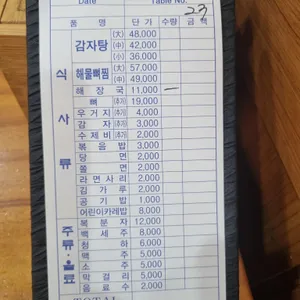 Date Table No. 23
품 명 단 가 수량 금 액
식 사 류
감자탕 (大) 48,000
(中) 42,000
(小) 36,000
해물뼈찜 (大) 57,000
(中) 49,000
해 장 국 11,000 —
뼈 (추가) 19,000
우 거 지 (추가) 4,000
감 자 (추가) 3,000
수 제 비 (추가) 2,000
볶 음 밥 3,000
당 면 2,000
쫄 면 2,000
라 면 사 리 2,000
김 가 루 2,000
공 기 밥 1,000
어린이카레밥 8,000
주류·음료
복 분 자 12,000
백 세 주 8,000
청 하 6,000
맥 주 5,000
소 주 5,000
막 걸 리 5,000
음 료 수 2,000
TOTAL